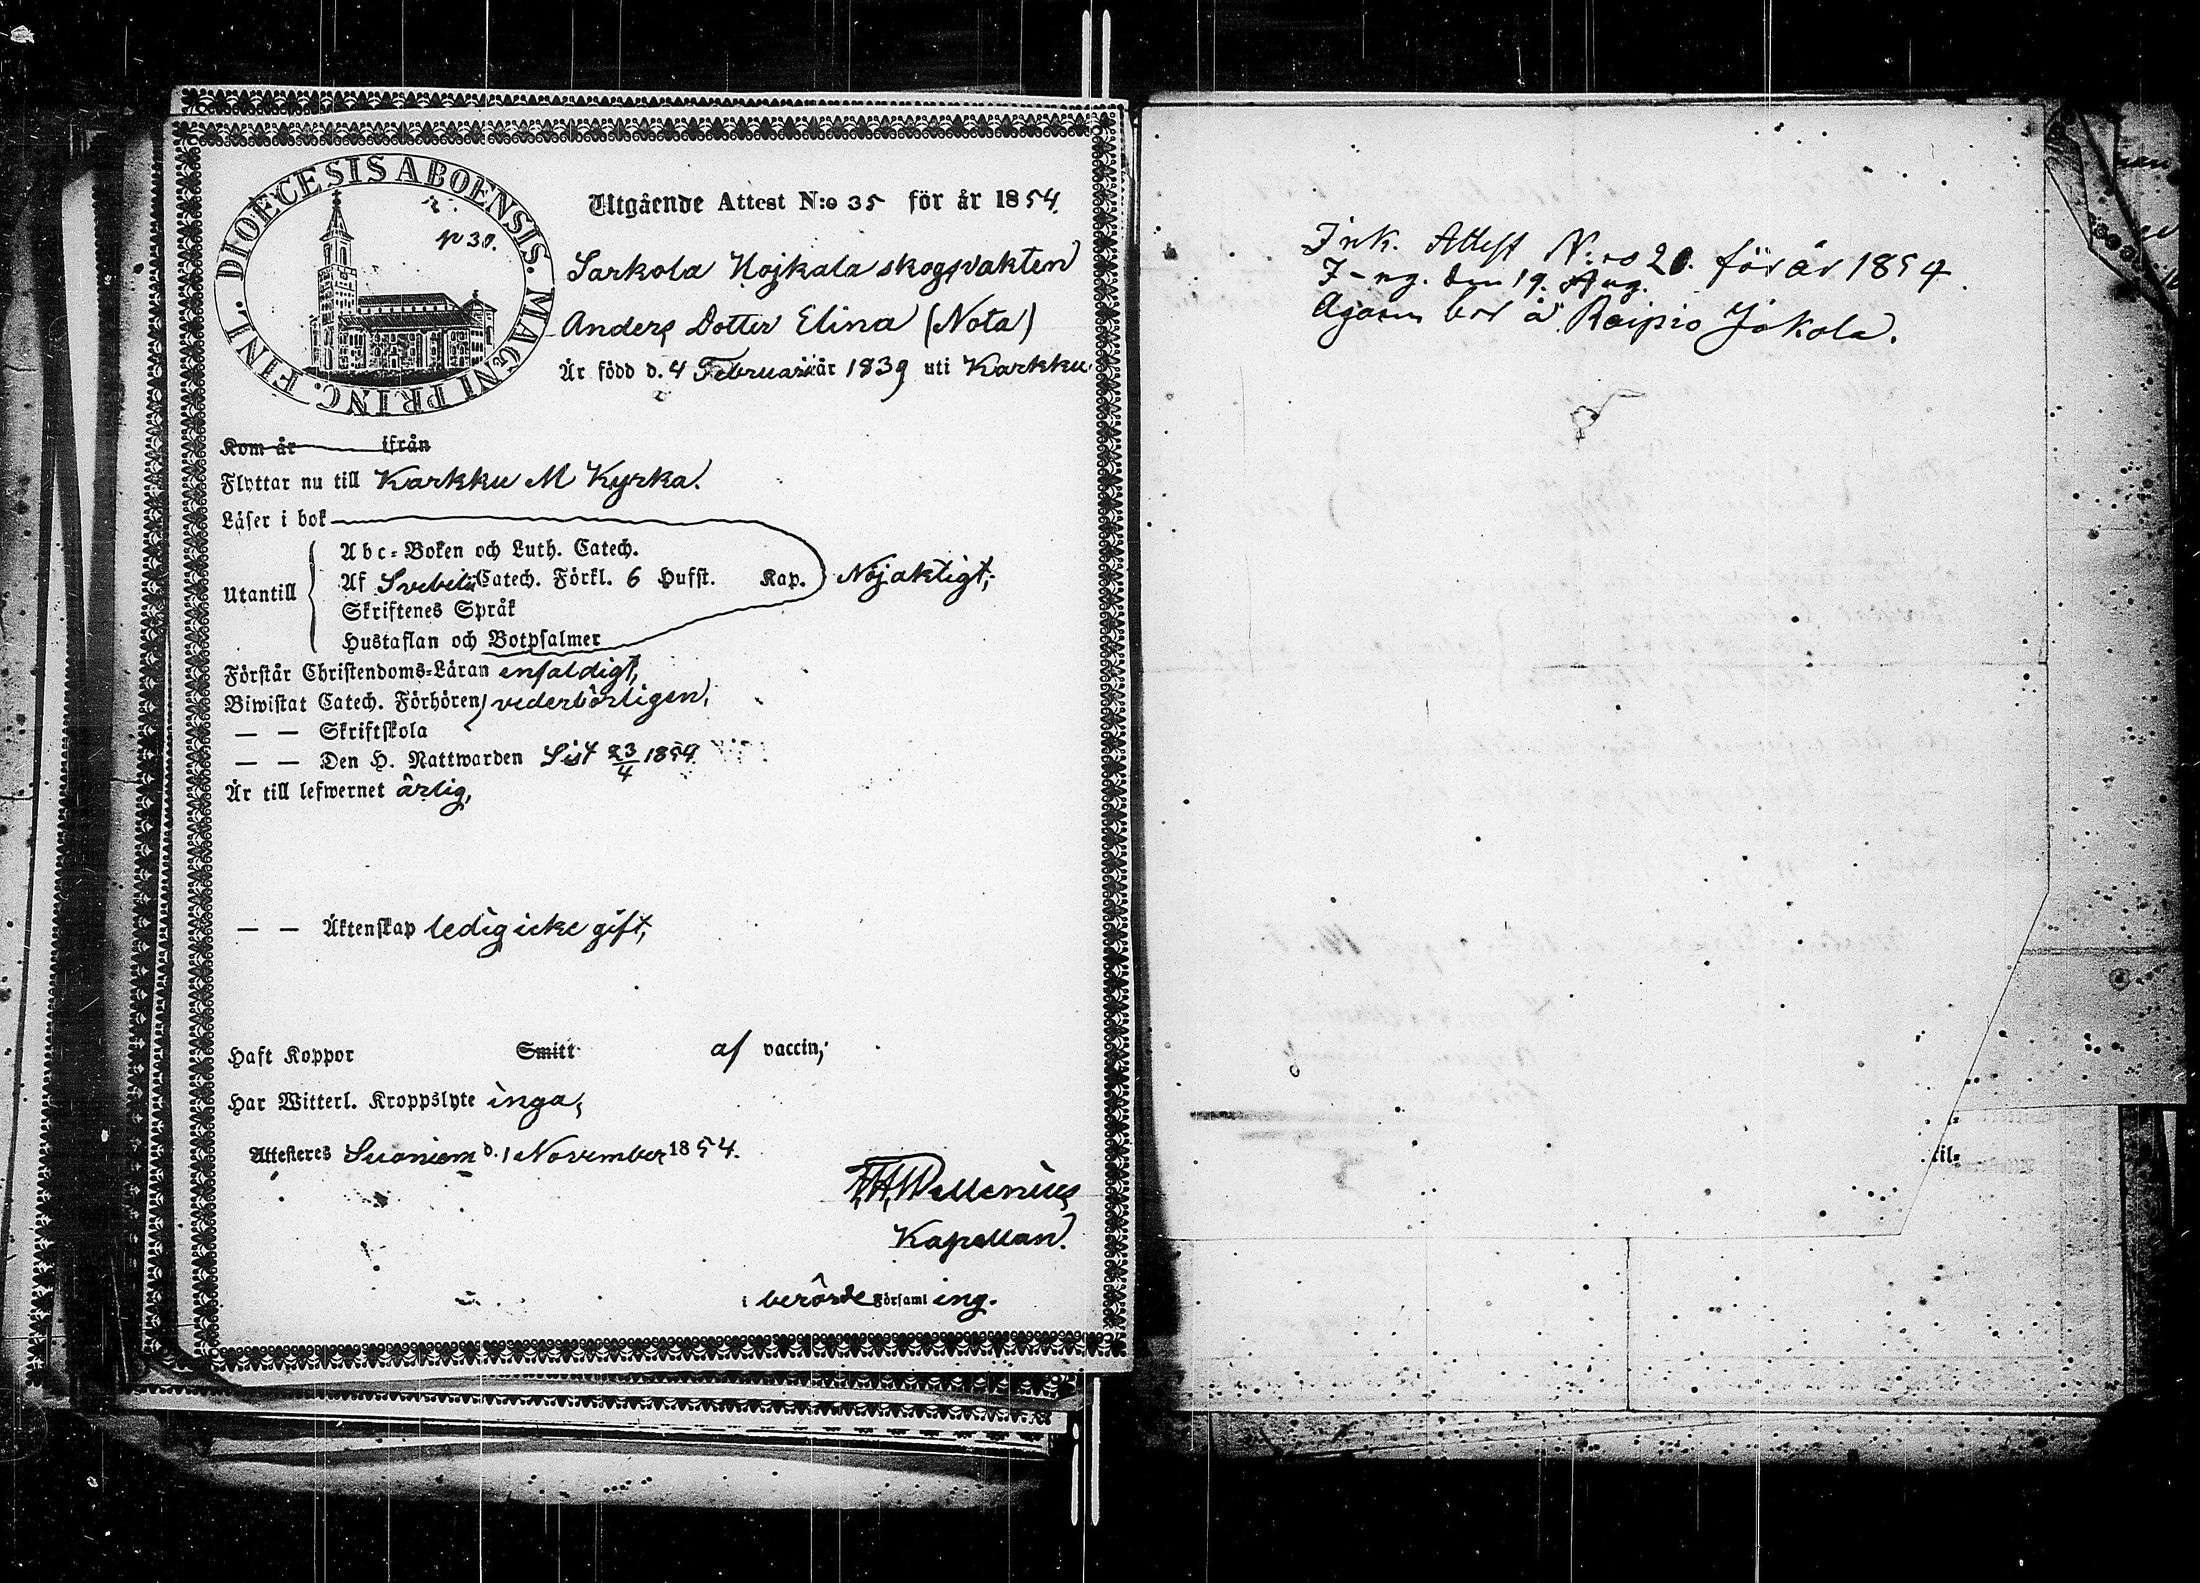 DIOECESIS ABOENSIS. MAGNI PRINC. FINL.
p 30.
Utgående Attest N:o 35 för år 1854.
Sarkola Nojkala skogsvakten
Anders Dotter Elina (Nota)
Är född d. 4 Februari år 1839 uti Karkku
Kom år ifrån
Flyttar nu till Karkku M Kyrka.
Läser i bok
Utantill
Abc-Boken och Luth. Catech.
Af Svebelii Catech. Förkl. 6 Hufst. Kap.
Skriftenes Språk
Hustaflan och Botpsalmer
Nöjaktigt;
Förstår Christendoms-Läran enfaldigt,
Biwistat Catech. Förhören vederbörligen,
— — Skriftskola
— — Den H. Nattwarden Sist 23/4 1854
Är till lefwernet ärlig,
— — Äktenskap ledig icke gift,
Haft Koppor Smitt af vaccin,
Har Witterl. Kroppslyte inga,
Attesteres Suoniemi d. 1 November 1854.
Wellenius
Kapellan.
i berörde Församl ing.
Ink. Attest N:ro 20. för år 1854
den 19. Aug.
bor å Raipio Jokola.
til-